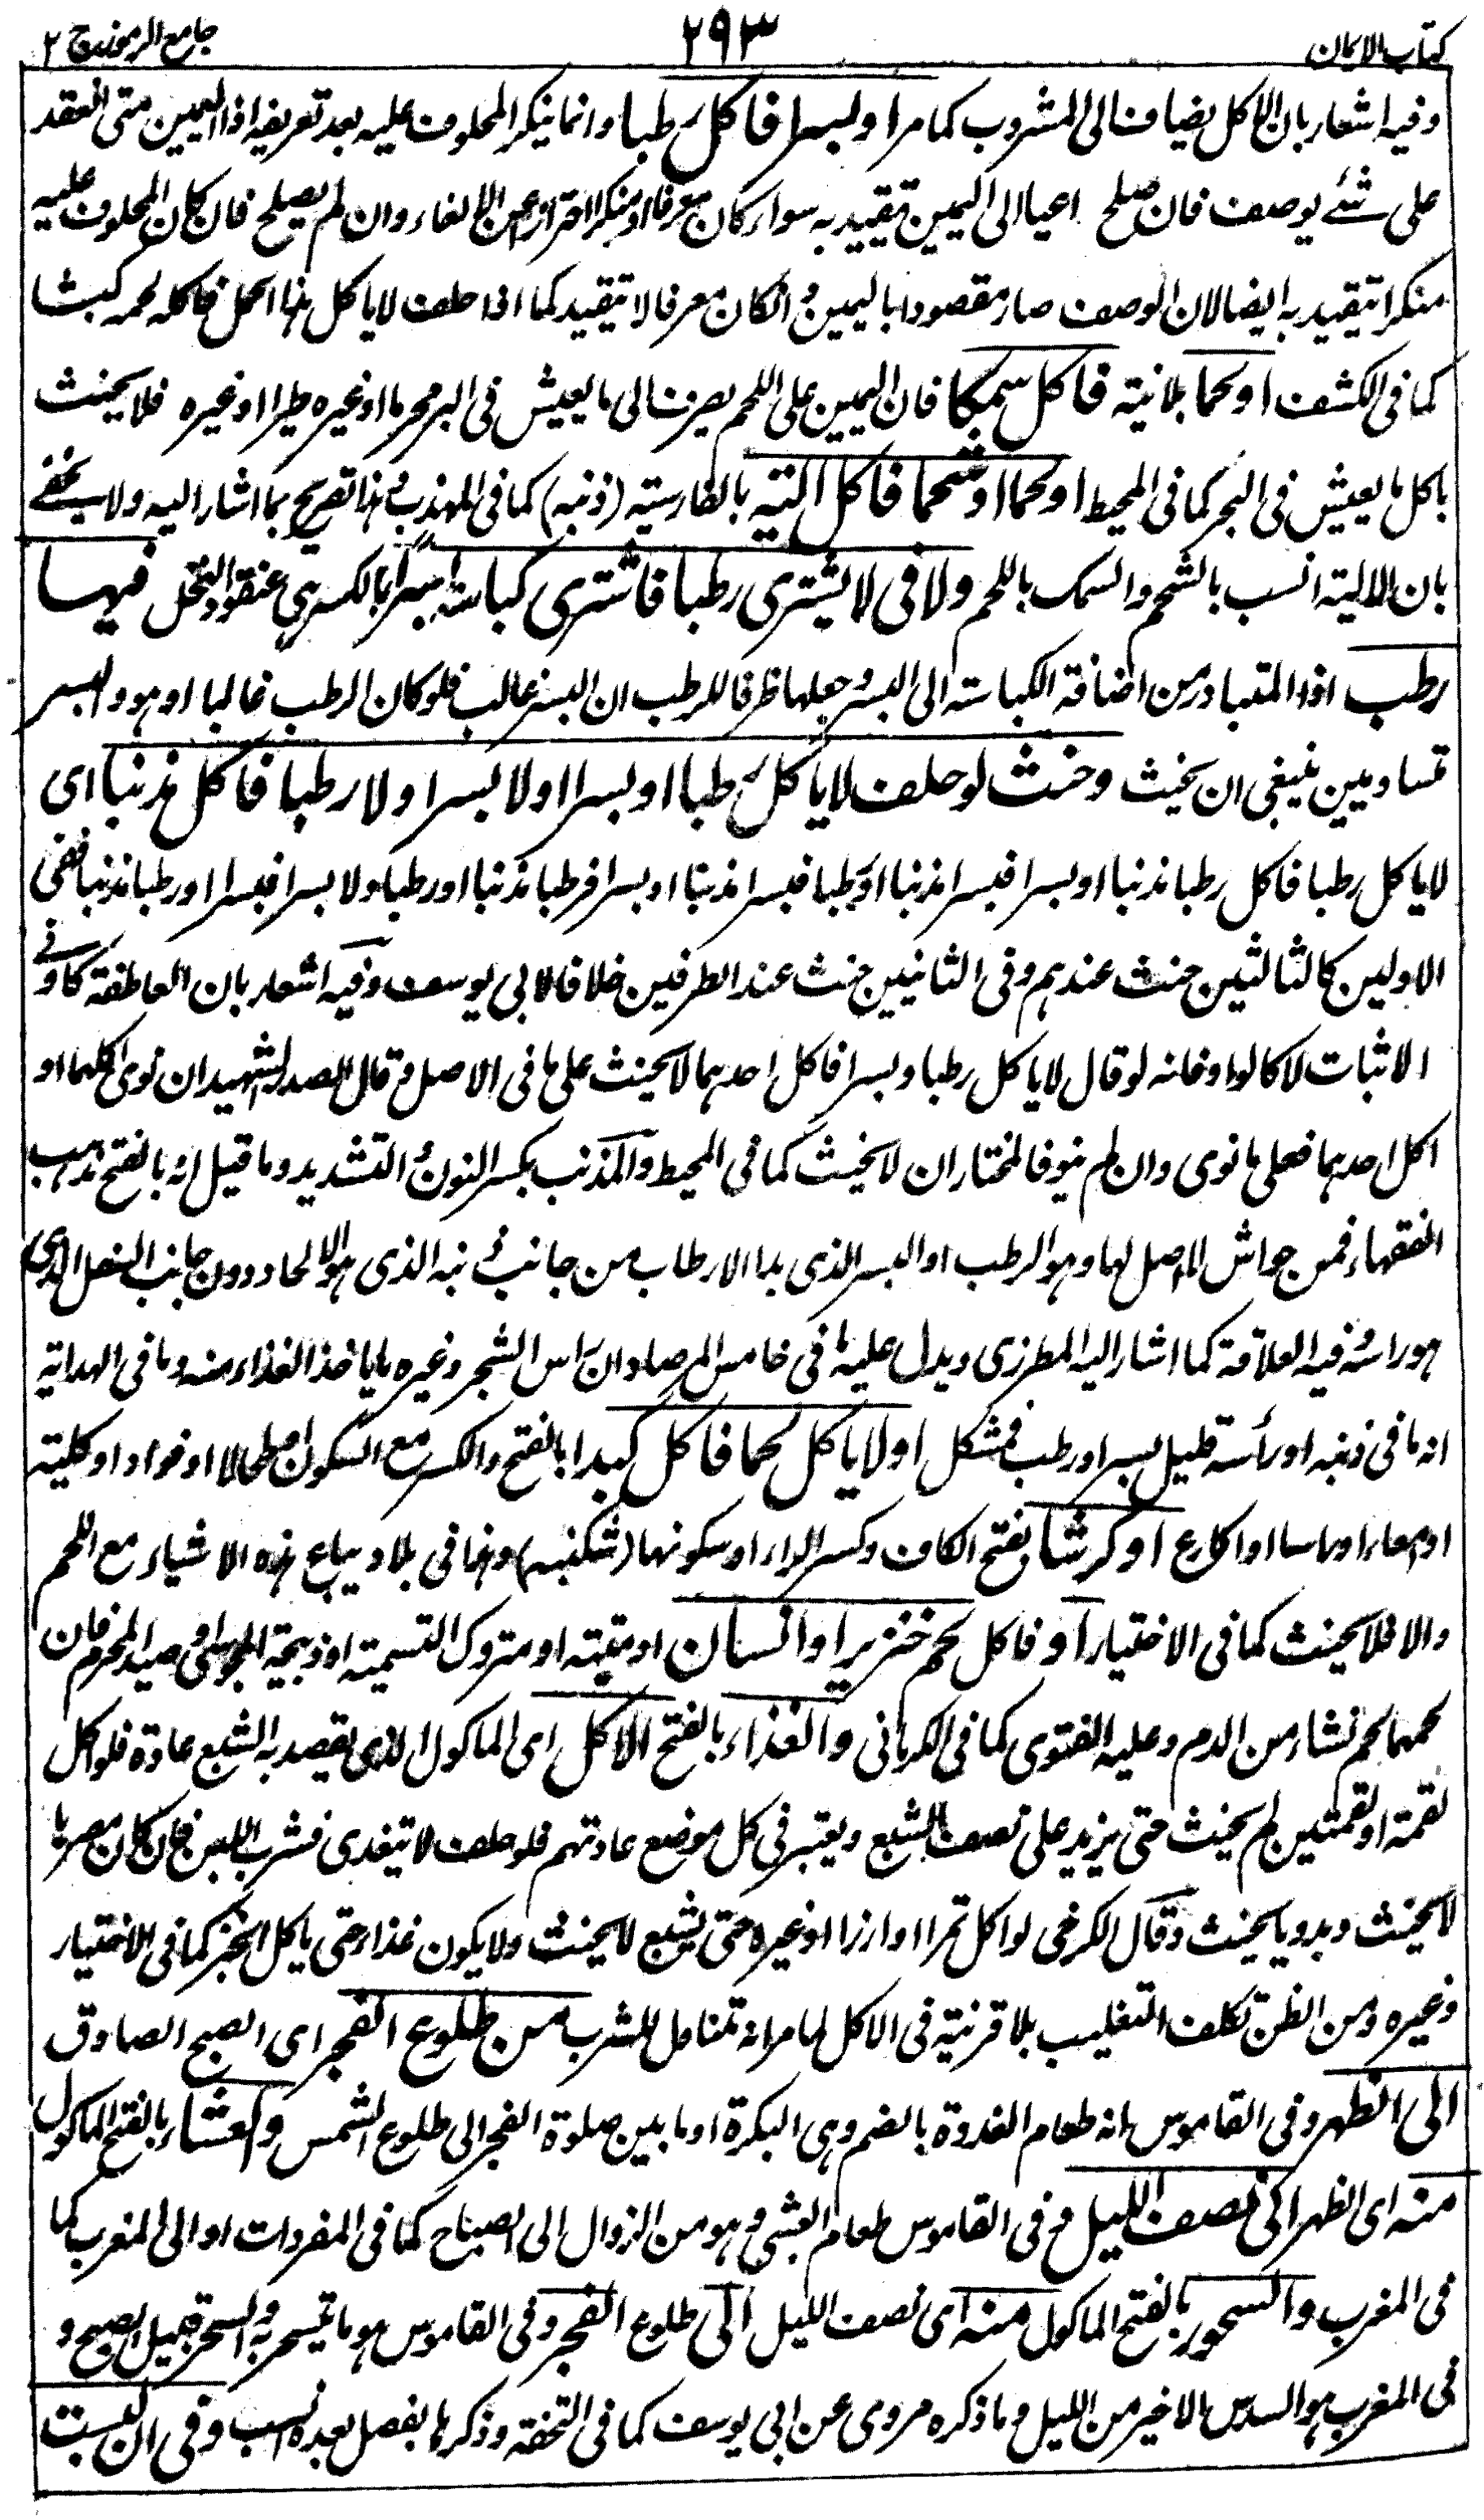 كتاب الايمان ٢٩٣ جامع الرموز ج ٢
وفيه اشعار بان الاكل يضاف الى المشروب كما مر او بسرا فاكل رطبا وانما ينكر المحلوف عليه بعد تعريفه اذ اليمين متى انعقد
على شئ يوصف فان صلح داعيا الى اليمين تقيد به سواء كان معرفا او منكرا احترازا عن الالغاء وان لم يصلح فان كان المحلوف عليه
منكرا تقيد به ايضا لان الوصف صار مقصودا باليمين وان كان معرفا لا تقيد كما اذا حلف لا ياكل هذا الحمل فاكل لحمه كبشا
كما فى الكشف او لحما بلا نية فاكل سمكا فان اليمين على اللحم يصرف الى ما يعيش فى البر محرما او غيره طيرا او غيره فلا يحنث
باكل ما يعيش فى البحر كما فى المحيط او لحما او شحما فاكل الية بالفارسية (دنبه) كما فى المهذب وهذا تصريح بما اشار اليه ولا يخفى
بان الالية انسب بالشحم والسمك باللحم ولا فى لا يشترى رطبا فاشترى كباسة بسر بالكسر هى عنقود النخل فيها
رطب اذ المتبادر من اضافة الكباسة الى البسر وجعلها ظرفا للرطب ان البسر غالب فلو كان الرطب غالبا او هو والبسر
متساويين ينبغى ان يحنث وحنث لو حلف لا ياكل رطبا او بسرا او لا بسرا ولا رطبا فاكل مذنبا اى
لا ياكل رطبا فاكل رطبا مذنبا او بسرا فبسرا مذنبا او رطبا فبسرا مذنبا او بسرا فرطبا مذنبا او رطبا ولا بسرا فبسرا او رطبا مذنبا ففى
الاولين كالثالثين حنث عندهم وفى الثانيين حنث عند الطرفين خلافا لابى يوسف وفيه اشعار بان العاطفة كاو فى
الاثبات لا كالواو فانه لو قال لا ياكل رطبا وبسرا فاكل احدهما لا يحنث على ما فى الاصل وقال الصدر الشهيد ان نوى اكلهما او
اكل احدهما فعلى ما نوى وان لم ينو فالمختار ان لا يحنث كما فى المحيط والمذنب بكسر النون والتشديد وما قيل انه بالفتح مذهب
الفقهاء فمن حواش لا اصل لها وهو الرطب او البسر الذى بدا الارطاب من جانب ذنبه الذى هو الالحاد دون جانب النصل الذى
هو راسه وفيه العلاقة كما اشار اليه المطرزى ويدل عليه ما فى خامس المرصاد ان راس الشجر وغيره ما ياخذ الغذاء منه وما فى الهداية
انه ما فى ذنبه او رأسه قليل بسر او رطب فمشكل او لا ياكل لحما فاكل كبدا بالفتح والكسر مع السكون او طحالا او فوادا او كلية
او معاء او راسا او اكارع او كرشا بفتح الكاف وكسر الراء او سكونها (شكنبه) وهذا فى بلاد يباع هذه الاشياء مع اللحم
والا فلا يحنث كما فى الاختيار او فاكل لحم خنزير او انسان او ميتة او متروك التسمية او ذبيحة المجوسى او صيد المحرم فان
لحمها لحم نشاء من الدم وعليه الفتوى كما فى الكرمانى والغذاء بالفتح الاكل اى الماكول الذى يقصد به الشبع عادة فلو اكل
لقمة او لقمتين لم يحنث حتى يزيد على نصف الشبع ويعتبر فى كل موضع عادتهم فلو حلف لا تغدى فشرب اللبن فان كان مصريا
لا يحنث وبدويا يحنث وقال الكرخى لو اكل تمرا او ارزا او غيره حتى يشبع لا يحنث ولا يكون غذاء حتى ياكل الخبز كما فى الاختيار
وغيره ومن الظن تكلف التغليب بلا قرينة فى الاكل لما مر انه تناول للشرب من طلوع الفجر اى الصبح الصادق
الى الظهر وفى القاموس انه طعام الغدوة بالضم وهى البكرة او ما بين صلوة الفجر الى طلوع الشمس والعشاء بالفتح الماكول
منه اى الظهر الى نصف الليل وفى القاموس طعام العشى وهو من الزوال الى الصباح كما فى المفردات او الى المغرب كما
فى المغرب والسحور بالفتح الماكول منه اى نصف الليل الى طلوع الفجر وفى القاموس هو ما يتسحر به والسحر قبيل الصبح و
فى المغرب هو السدس الاخير من الليل وما ذكره مروى عن ابى يوسف كما فى التحفة وذكرها بفصل بعده انسب وفى ان لبست